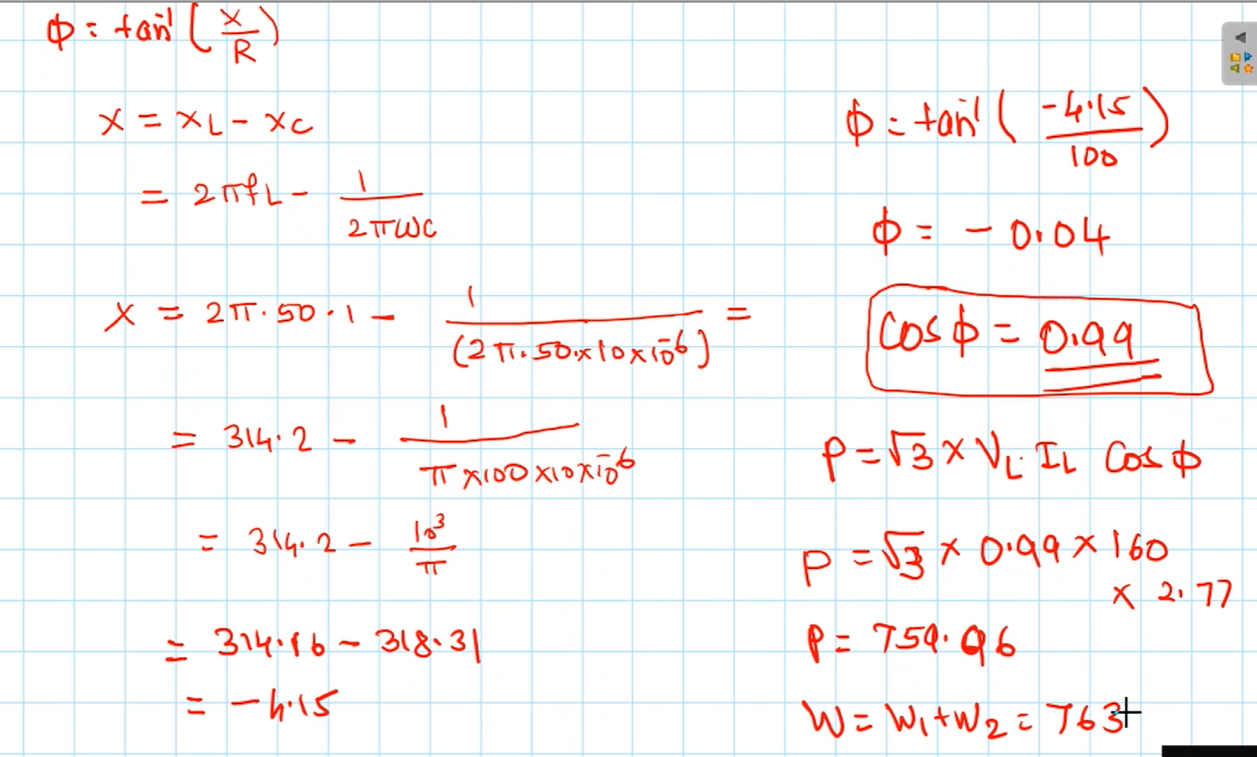 ϕ = tan⁻¹ (X/R)
X = XL - XC
= 2πfL - 1/2πωC
X = 2π.50.1 - 1/(2π.50.×10×10⁻⁶) =
= 314.2 - 1/π×100×10×10⁻⁶
= 314.2 - 10³/π
= 314.16 - 318.31
= -4.15
ϕ = tan⁻¹ (-4.15/100)
ϕ = - 0.04
Cosϕ = 0.99
P = √3 × VL IL Cosϕ
P = √3 × 0.99 × 160
× 2.77
P = 759.96
W = W₁+W₂ = 763